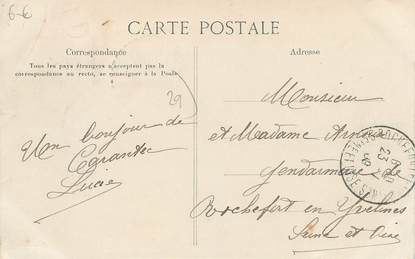 6-6
CARTE POSTALE
Correspondance
Tous les pays étrangers n'acceptent pas la
correspondance au recto, se renseigner à la Poste
29
Un bonjour de
Carantec
Lucie
Adresse
Monsieur
et Madame
Gendarmerie de
Rochefort en Yvelines
Seine et Oise